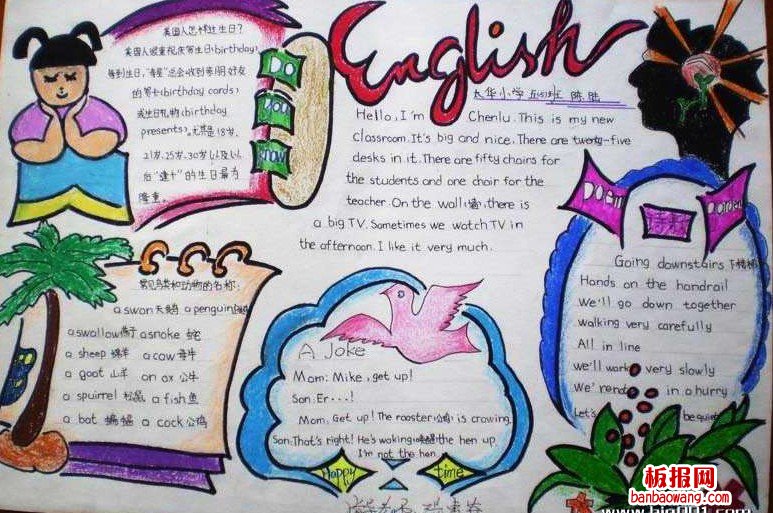 美国人怎样过生日?
美国人很重视庆贺生日(birthday),
每到生日,"寿星"总会收到亲朋好友
的贺卡(birthday cards)
或生日礼物(birthday
presents)。尤其是18岁、
21岁、25岁、30岁以及以
后"逢十"的生日最为
隆重。
DO
you
know
English
Hello, I'm Chenlu. This is my new
classroom. It's big and nice. There are twenty-five
desks in it. There are fifty chairs for
the students and one chair for the
teacher. On the wall墙, there is
a big TV. Sometimes we watch TV in
the afternoon. I like it very much.
常见鸟类和动物的名称:
a swan天鹅 a penguin企鹅
a swallow燕子 a snake 蛇
a sheep 绵羊 a cow 奶牛
a goat 山羊 an ox 公牛
a spuirrel 松鼠 a fish 鱼
a bat 蝙蝠 a cock 公鸡
A Joke
Mom: Mike, get up!
Son: Er···!
Mom: Get up! The rooster公鸡 is crowing.
Son: That's right! He's waking the hen up.
I'm not the hen.
Happy time
Going downstairs 下楼梯
Hands on the handrail
We'll go down together
walking very carefully
All in line
we'll work very slowly
in a hurry
Let's be quiet
板报网
banbaowang.com